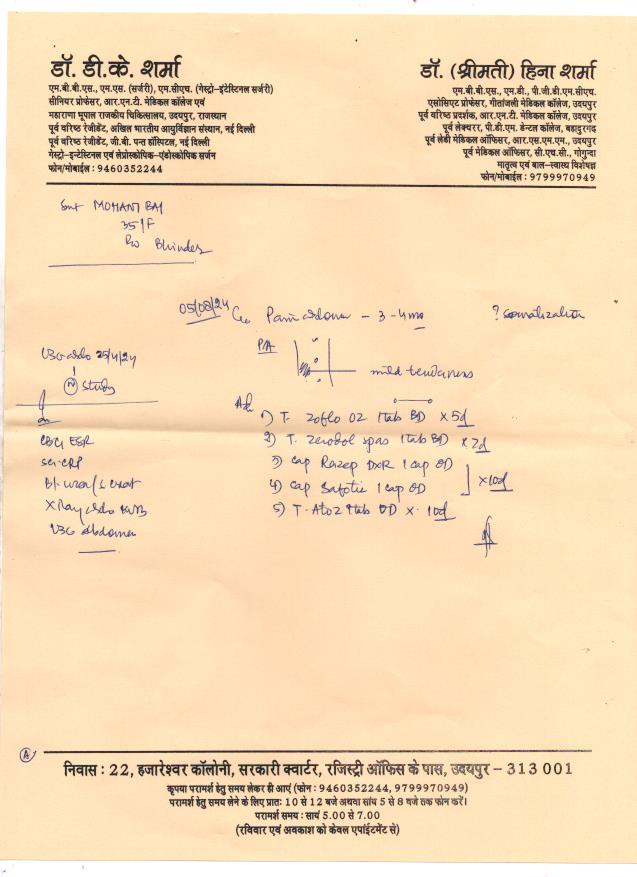 डॉ. डी.के. शर्मा
एम.बी.बी.एस., एम.एस. (सर्जरी), एम.सीएच. (गेस्ट्रो-इंटेस्टिनल सर्जरी)
सीनियर प्रोफेसर, आर.एन.टी. मेडिकल कॉलेज एवं
महाराणा भूपाल राजकीय चिकित्सालय, उदयपुर, राजस्थान
पूर्व वरिष्ठ रेजीडेंट, अखिल भारतीय आयुर्विज्ञान संस्थान, नई दिल्ली
पूर्व वरिष्ठ रेजीडेंट, जी.बी. पन्त हॉस्पिटल, नई दिल्ली
गेस्ट्रो-इन्टेस्टिनल एवं लेप्रोस्कोपिक-एंडोस्कोपिक सर्जन
फोन/मोबाईल : 9460352244
डॉ. (श्रीमती) हिना शर्मा
एम.बी.बी.एस., एम.डी., पी.जी.डी.एम.सीएच.
एसोसिएट प्रोफेसर, गीतांजली मेडिकल कॉलेज, उदयपुर
पूर्व वरिष्ठ प्रदर्शक, आर.एन.टी. मेडिकल कॉलेज, उदयपुर
पूर्व लेक्चरर, पी.डी.एम. डेन्टल कॉलेज, बहादुरगढ़
पूर्व लेडी मेडिकल ऑफिसर, आर.एस.एम.एम., उदयपुर
पूर्व मेडिकल ऑफिसर, सी.एच.सी., गोगुन्दा
मातृत्व एवं बाल-स्वास्थ्य विशेषज्ञ
फोन/मोबाईल : 9799970949
Smt MOHANI BAI
35/F
R/o Bhinder
05/08/24 C/o Pain abdomen - 3-4mo
? somatization
P/A
mild tenderness
USG abdo 25/4/24
(N) Study
CBC, ESR
Se. CRP
Bl. urea/S creat
X Ray abdo KUB
USG abdomen
Adv
1) T. Zoflo OZ 1tab BD x 5d
2) T. Zerodol spas 1tab BD x 7d
3) Cap Razep DXR 1 cap OD
4) Cap Safotic 1 cap OD
x 10d
5) T. Atoz 1tab OD x 10d
A
निवास : 22, हजारेश्वर कॉलोनी, सरकारी क्वार्टर, रजिस्ट्री ऑफिस के पास, उदयपुर – 313 001
कृपया परामर्श हेतु समय लेकर ही आएं (फोन : 9460352244, 9799970949)
परामर्श हेतु समय लेने के लिए प्रातः 10 से 12 बजे अथवा सांय 5 से 8 बजे तक फोन करें।
परामर्श समय : सायं 5.00 से 7.00
(रविवार एवं अवकाश को केवल एपॉईंटमेंट से)